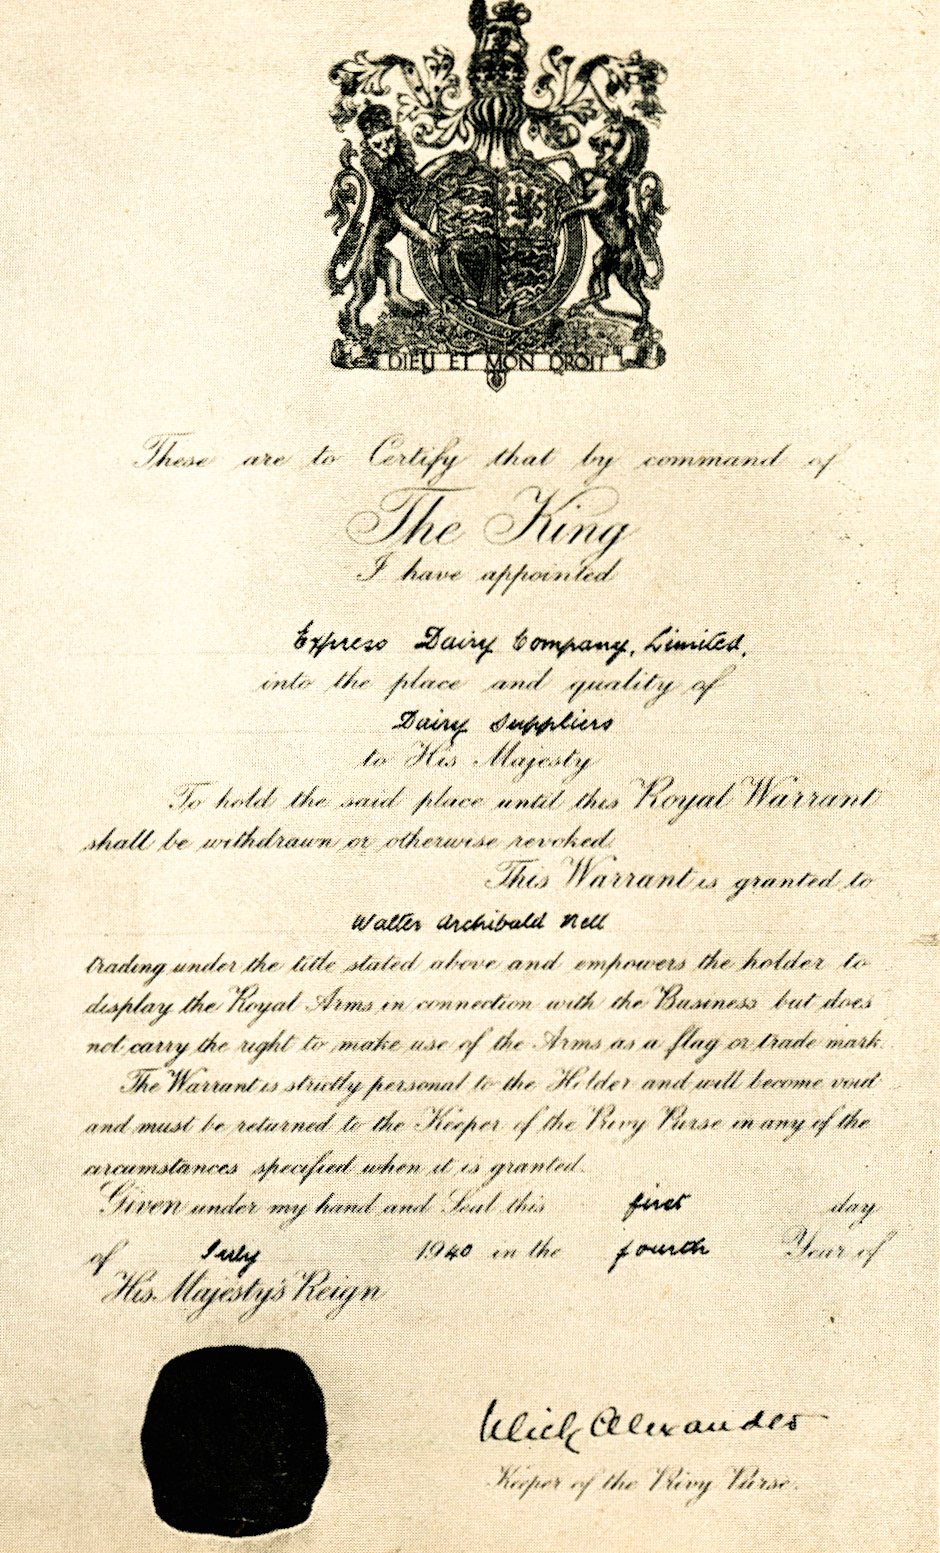 DIEU ET MON DROIT
These are to Certify that by command of
The King
I have appointed
Express Dairy Company, Limited,
into the place and quality of
Dairy Suppliers
to His Majesty
To hold the said place until this Royal Warrant
shall be withdrawn or otherwise revoked.
This Warrant is granted to
Walter Archibald Nell
trading under the title stated above and empowers the holder to
display the Royal Arms in connection with the Business but does
not carry the right to make use of the Arms as a flag or trade mark.
The Warrant is strictly personal to the Holder and will become void
and must be returned to the Keeper of the Privy Purse in any of the
circumstances specified when it is granted.
Given under my hand and Seal this first day
of July 1940 in the fourth Year of
His Majesty's Reign
Ulick Alexander
Keeper of the Privy Purse.